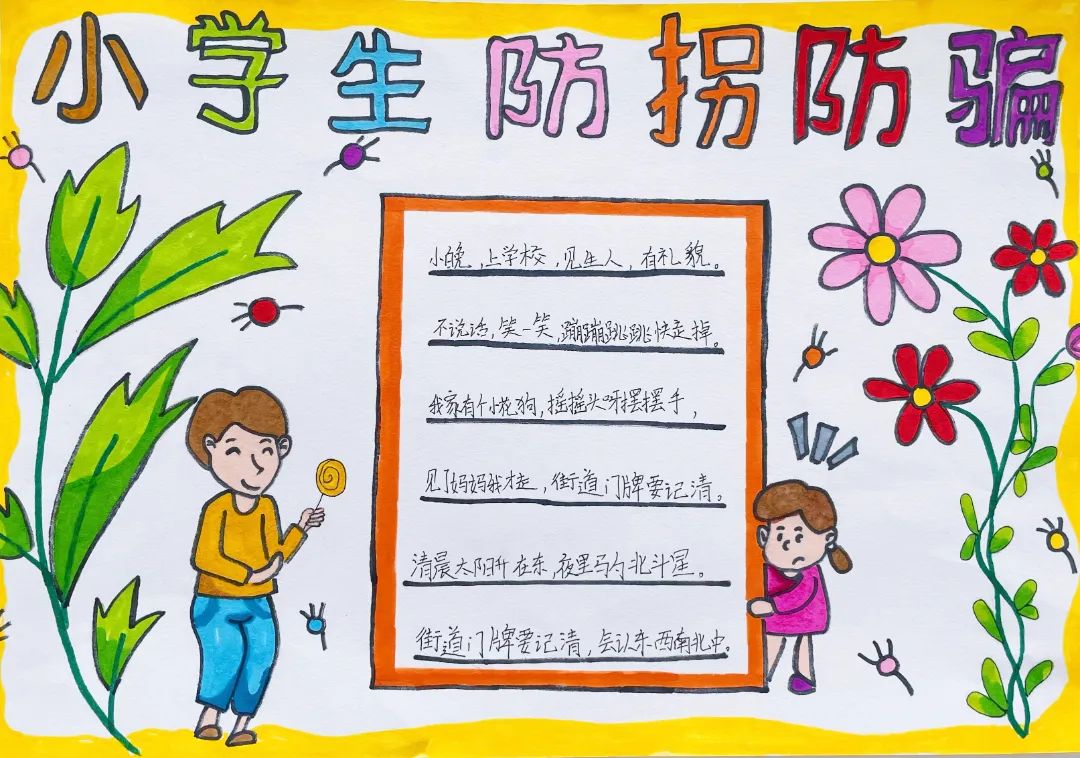 小学生防拐防骗
小晚,上学校,见生人,有礼貌。
不说话,笑一笑,蹦蹦跳跳快走掉。
我家有个小花狗,摇摇头呀摆摆手,
见了妈妈我才走,街道门牌要记清。
清晨太阳升在东,夜里马勺北斗星。
街道门牌要记清,会认东西南北中。